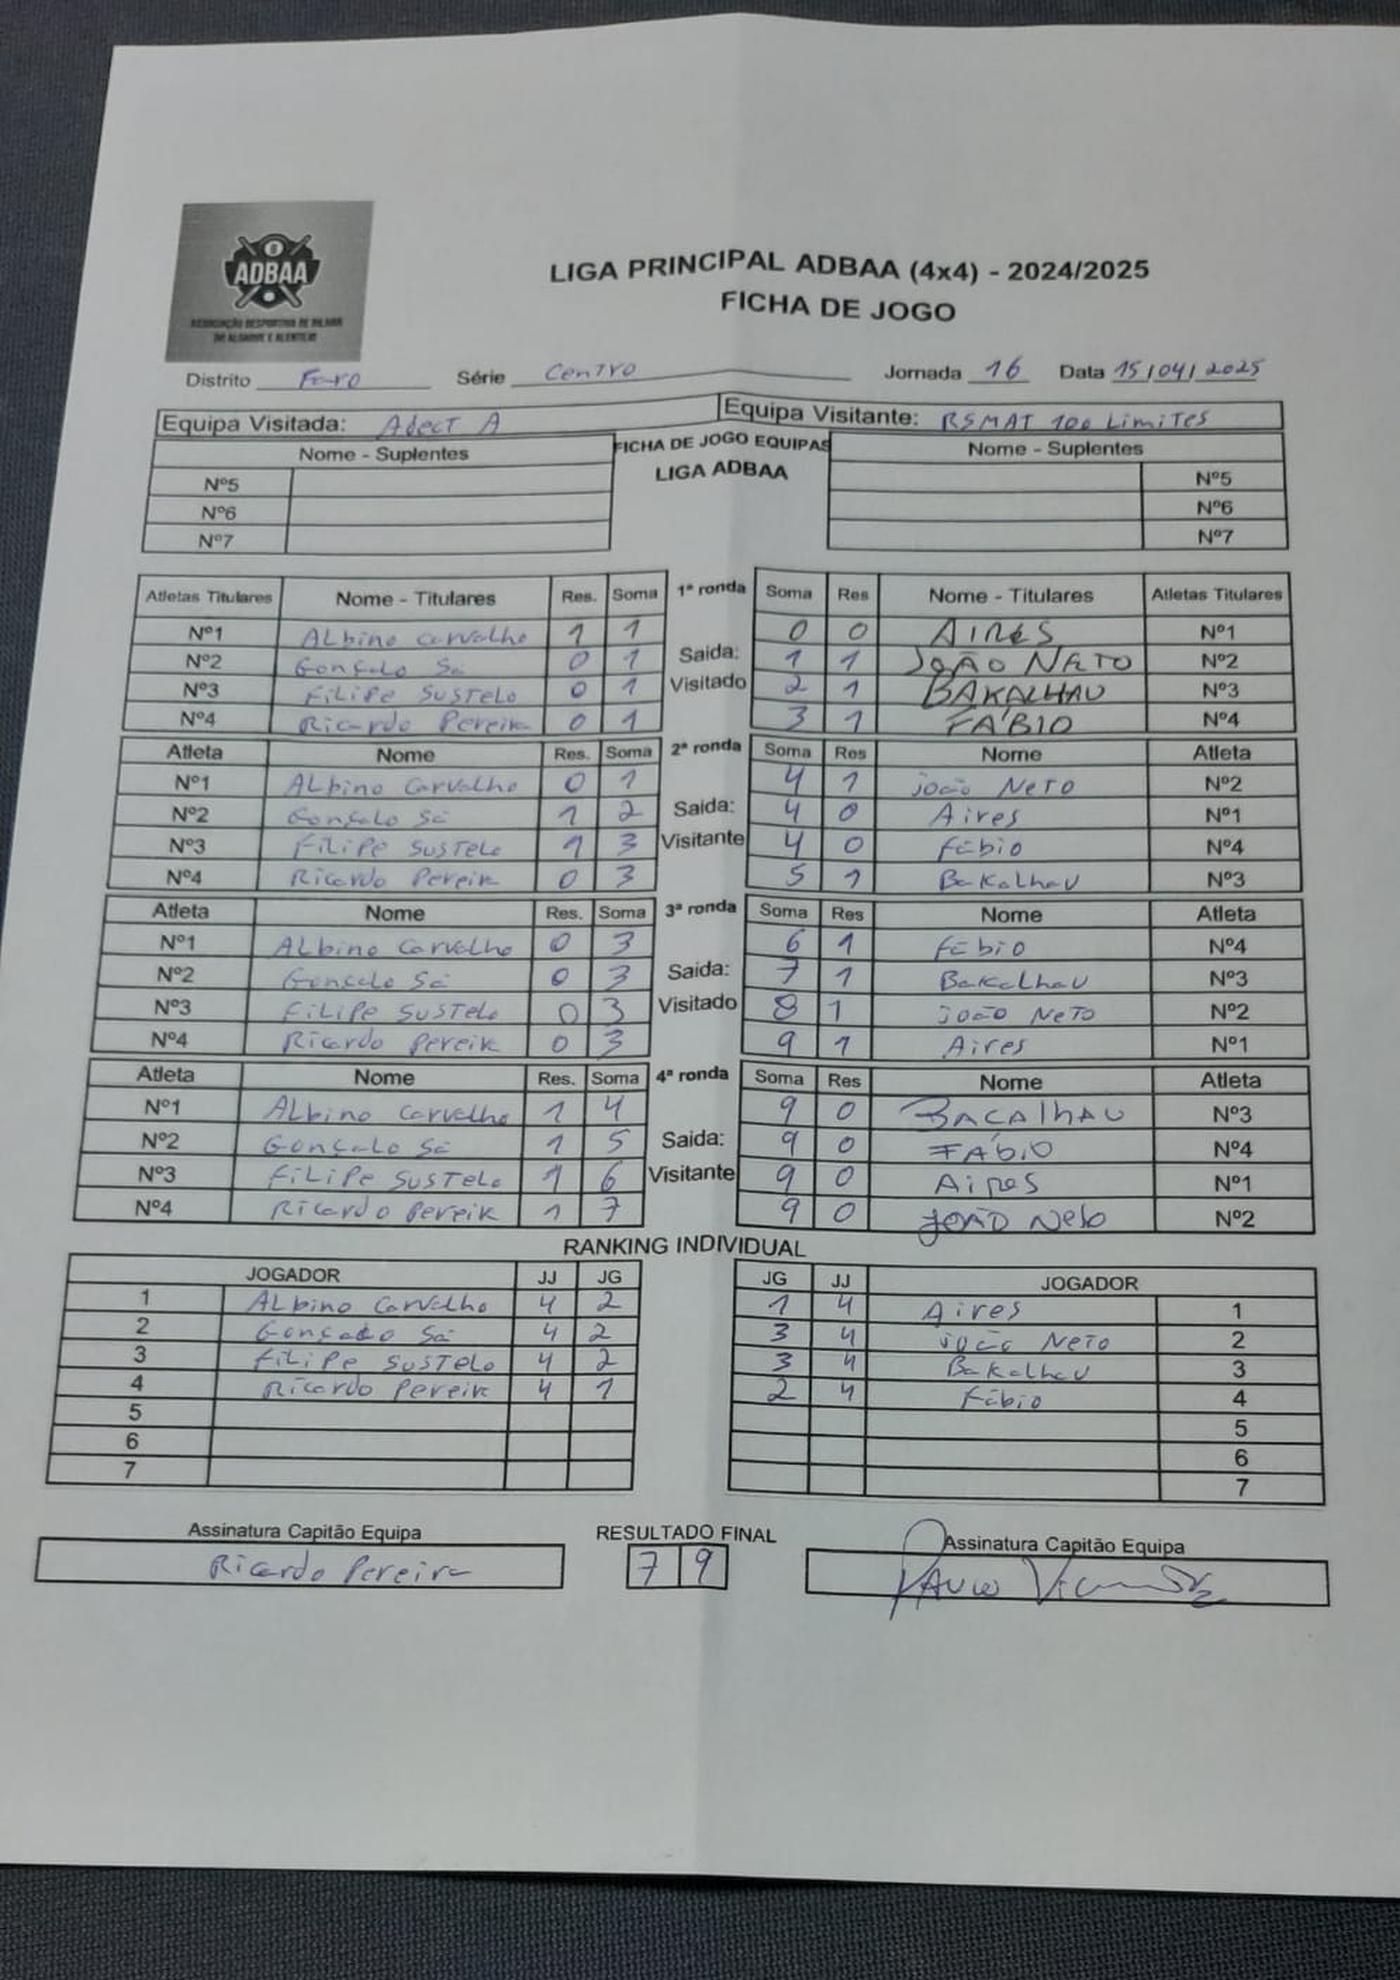 ADBAA
ASSOCIAÇÃO DESPORTIVA DE BILHAR
DO ALGARVE E ALENTEJO
LIGA PRINCIPAL ADBAA (4x4) - 2024/2025
FICHA DE JOGO
Distrito Faro Série Centro Jornada 16 Data 15/04/2025
Equipa Visitada: Adect A Equipa Visitante: RSMAT 100 Limites
Nome - Suplentes FICHA DE JOGO EQUIPAS Nome - Suplentes
LIGA ADBAA
Nº5 Nº5
Nº6 Nº6
Nº7 Nº7
Atletas Titulares Nome - Titulares Res. Soma 1ª ronda Soma Res Nome - Titulares Atletas Titulares
Nº1 Albino Carvalho 1 1 0 0 AIRES Nº1
Nº2 Gonçalo Sá 0 1 Saida: 1 1 JOÃO NETO Nº2
Nº3 Filipe Sustelo 0 1 Visitado 2 1 BAKALHAU Nº3
Nº4 Ricardo Pereira 0 1 3 1 FÁBIO Nº4
Atleta Nome Res. Soma 2ª ronda Soma Res Nome Atleta
Nº1 Albino Carvalho 0 1 4 1 João Neto Nº2
Nº2 Gonçalo Sá 1 2 Saida: 4 0 Aires Nº1
Nº3 Filipe Sustelo 1 3 Visitante 4 0 Fábio Nº4
Nº4 Ricardo Pereira 0 3 5 1 Bakalhau Nº3
Atleta Nome Res. Soma 3ª ronda Soma Res Nome Atleta
Nº1 Albino Carvalho 0 3 6 1 Fábio Nº4
Nº2 Gonçalo Sá 0 3 Saida: 7 1 Bakalhau Nº3
Nº3 Filipe Sustelo 0 3 Visitado 8 1 João Neto Nº2
Nº4 Ricardo Pereira 0 3 9 1 Aires Nº1
Atleta Nome Res. Soma 4ª ronda Soma Res Nome Atleta
Nº1 Albino Carvalho 1 4 9 0 BACAlhAU Nº3
Nº2 Gonçalo Sá 1 5 Saida: 9 0 FÁbiO Nº4
Nº3 Filipe Sustelo 1 6 Visitante 9 0 AiRES Nº1
Nº4 Ricardo Pereira 1 7 9 0 JOÃO Neto Nº2
RANKING INDIVIDUAL
JOGADOR JJ JG JG JJ JOGADOR
1 Albino Carvalho 4 2 1 4 Aires 1
2 Gonçalo Sá 4 2 3 4 João Neto 2
3 Filipe Sustelo 4 2 3 4 Bakalhau 3
4 Ricardo Pereira 4 1 2 4 Fábio 4
5 5
6 6
7 7
Assinatura Capitão Equipa RESULTADO FINAL Assinatura Capitão Equipa
Ricardo Pereira 7 9